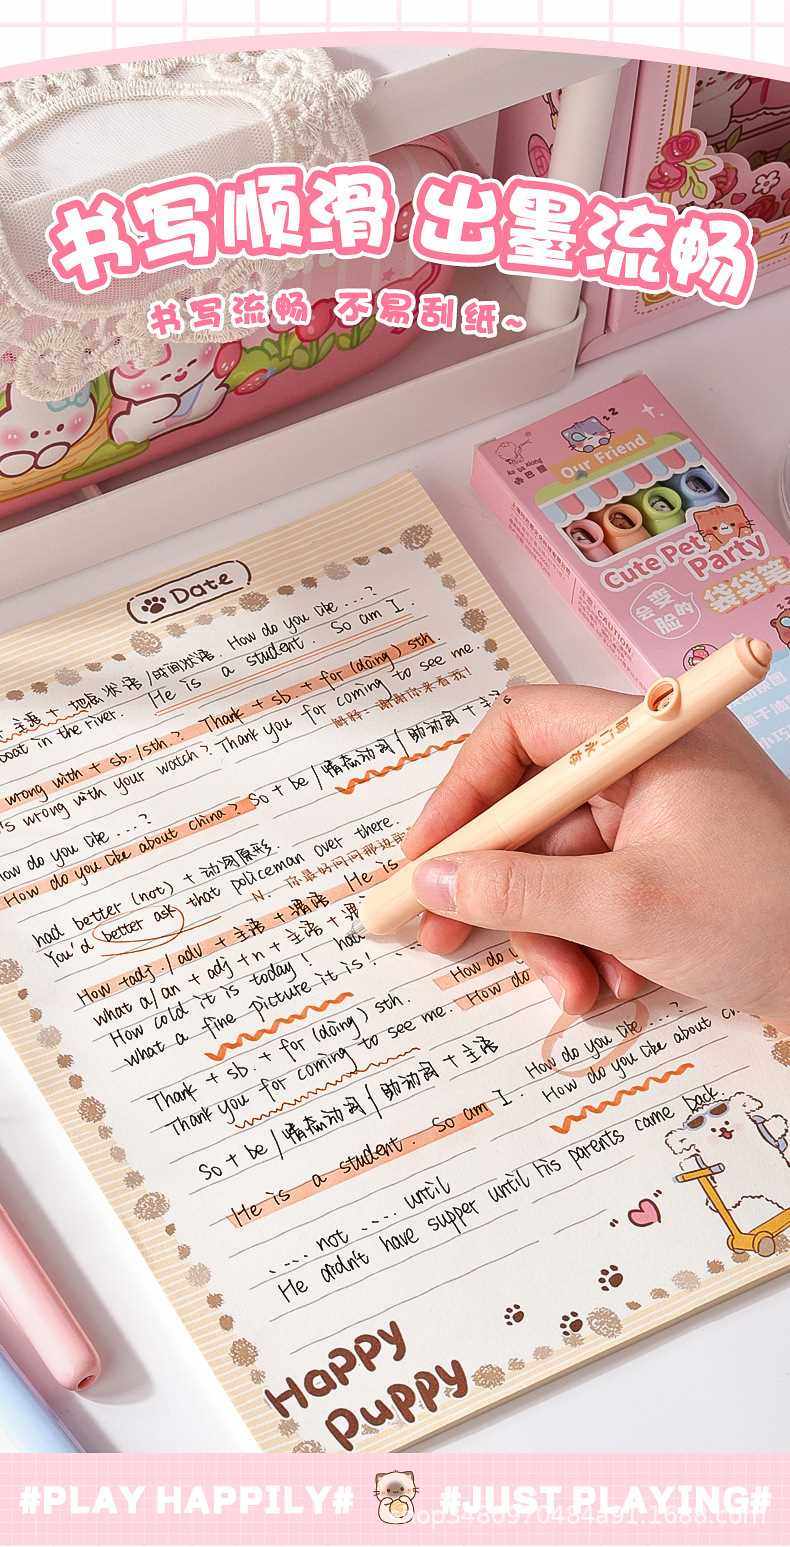 书写顺滑 出墨流畅
书写流畅 不易刮纸~
Our Friend
Cute Pet
Party
会变
脸的
袋袋笔
CAUTION
Date
How do you like ...?
主语 + 地点状语/时间状语.
He is a student. So am I.
boat in the river.
Thank + sb. + for (doing) sth.
wrong with + sb./sth.?
Thank you for coming to see me.
解释: 谢谢你来看我!
's wrong with your watch?
So + be / 情态动词 / 助动词 + 主语
How do you like ...?
How do you like about China?
had better (not) + 动词原形.
You'd better ask that policeman over there.
N. 你最好问问那边
How + adj./adv + 主语 + 谓语 He is
what a/an + adj + n + 主语 + 谓
How cold it is today!
what a fine picture it is!
How do
How do
Thank + sb. + for (doing) sth.
Thank you for coming to see me.
How do you like ...?
How do you like about C
So + be / 情态动词 / 助动词 + 主语
He is a student. So am I.
.... not .... until
He didn't have supper until his parents came back.
Happy
Puppy
#PLAY HAPPILY# #JUST PLAYING#